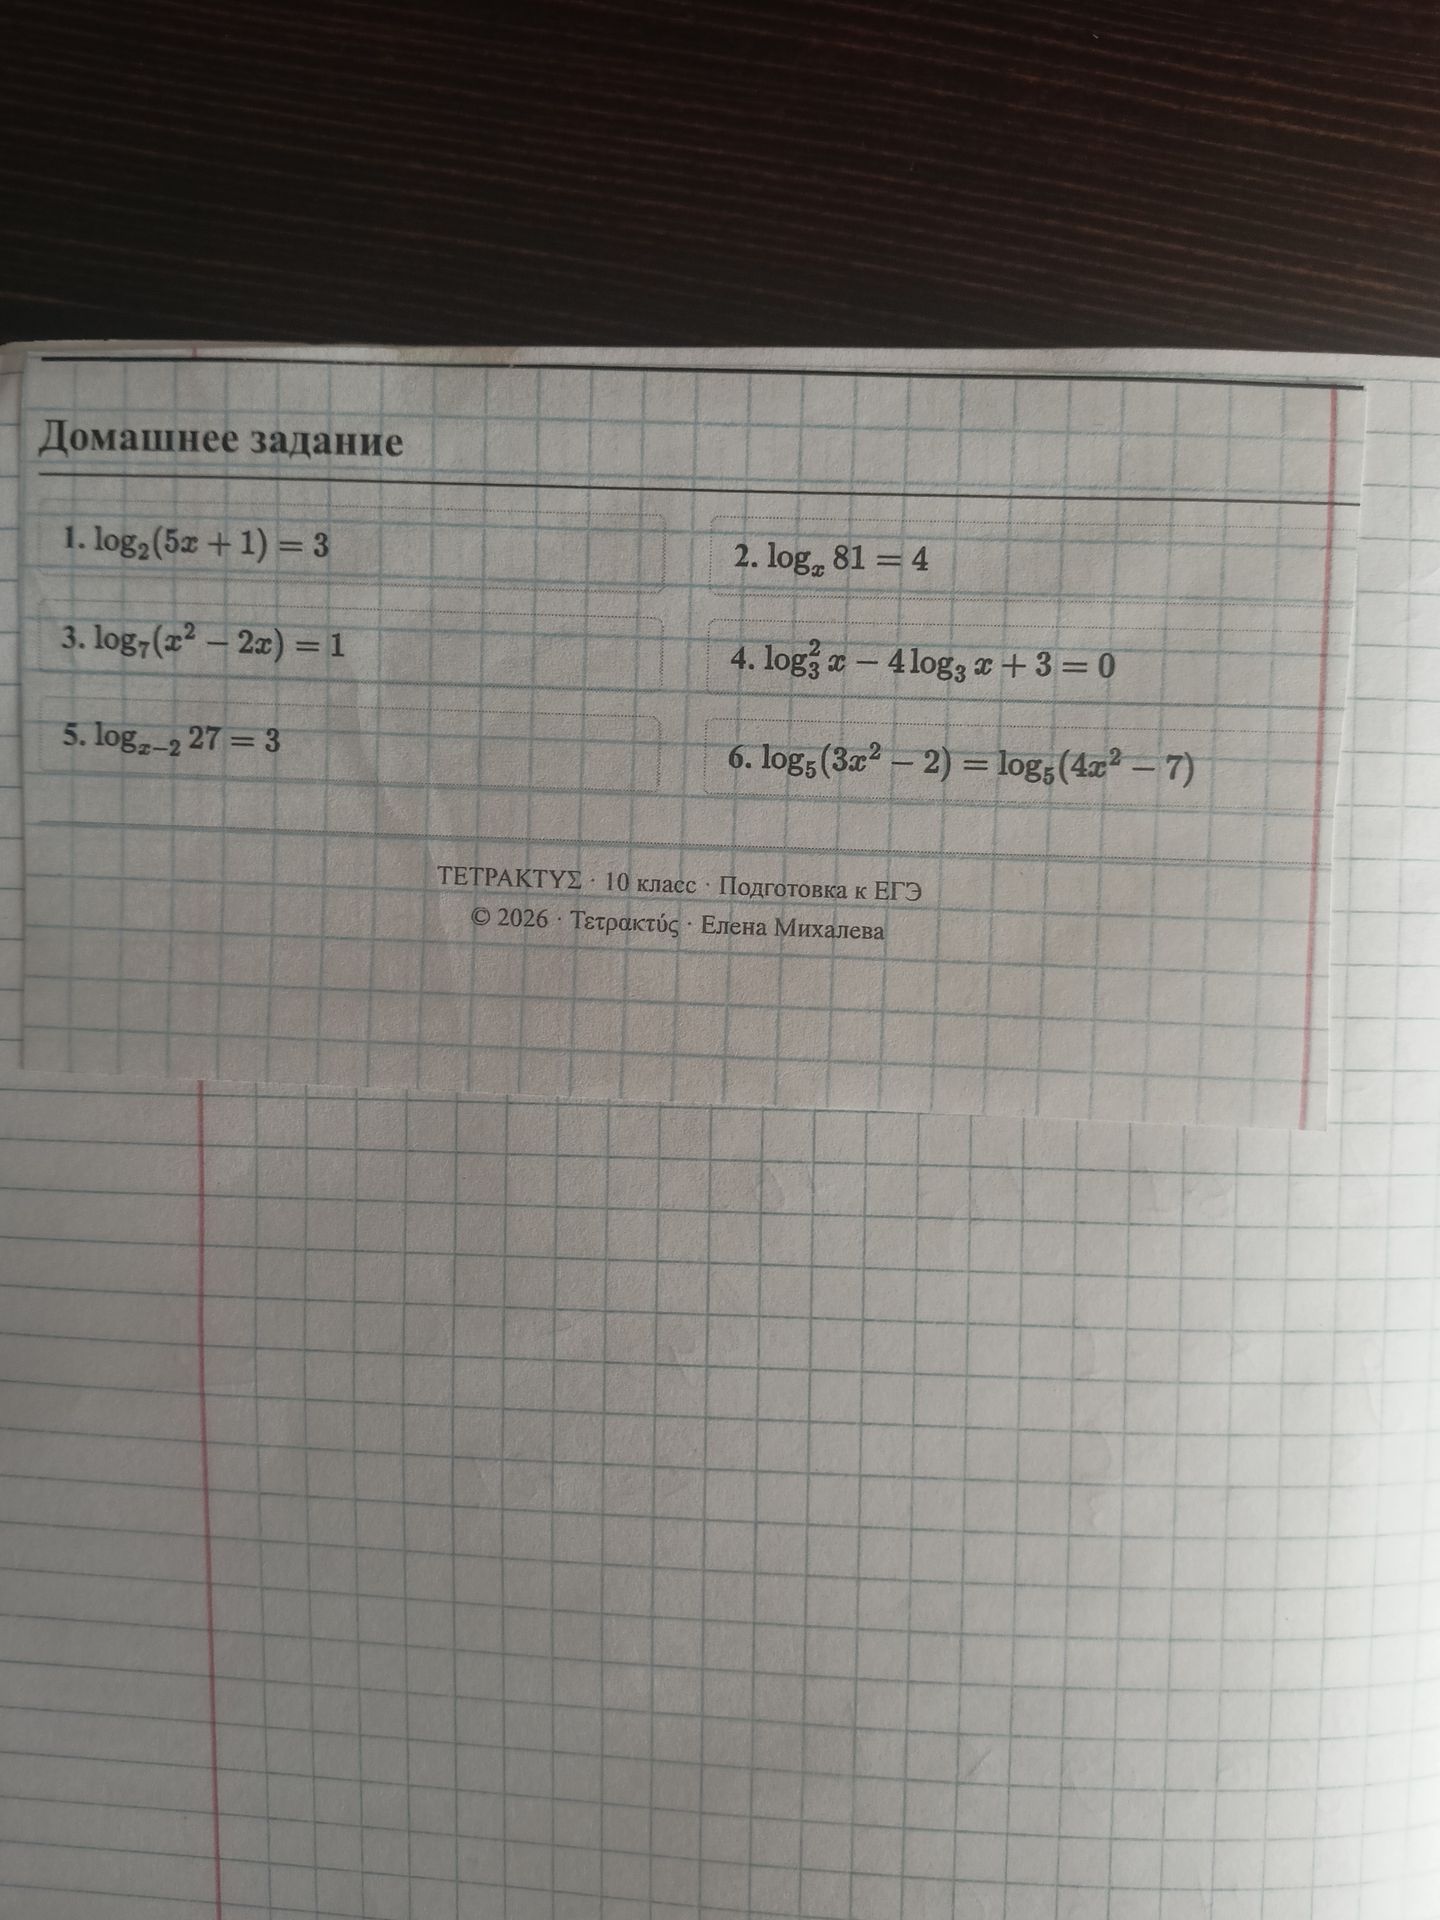 Домашнее задание
1. log₂(5x + 1) = 3
2. logₓ 81 = 4
3. log₇(x² − 2x) = 1
4. log₃² x − 4 log₃ x + 3 = 0
5. logₓ₋₂ 27 = 3
6. log₅(3x² − 2) = log₅(4x² − 7)
ΤΕΤΡΑΚΤΥΣ · 10 класс · Подготовка к ЕГЭ
© 2026 · Τετρακτύς · Елена Михалева